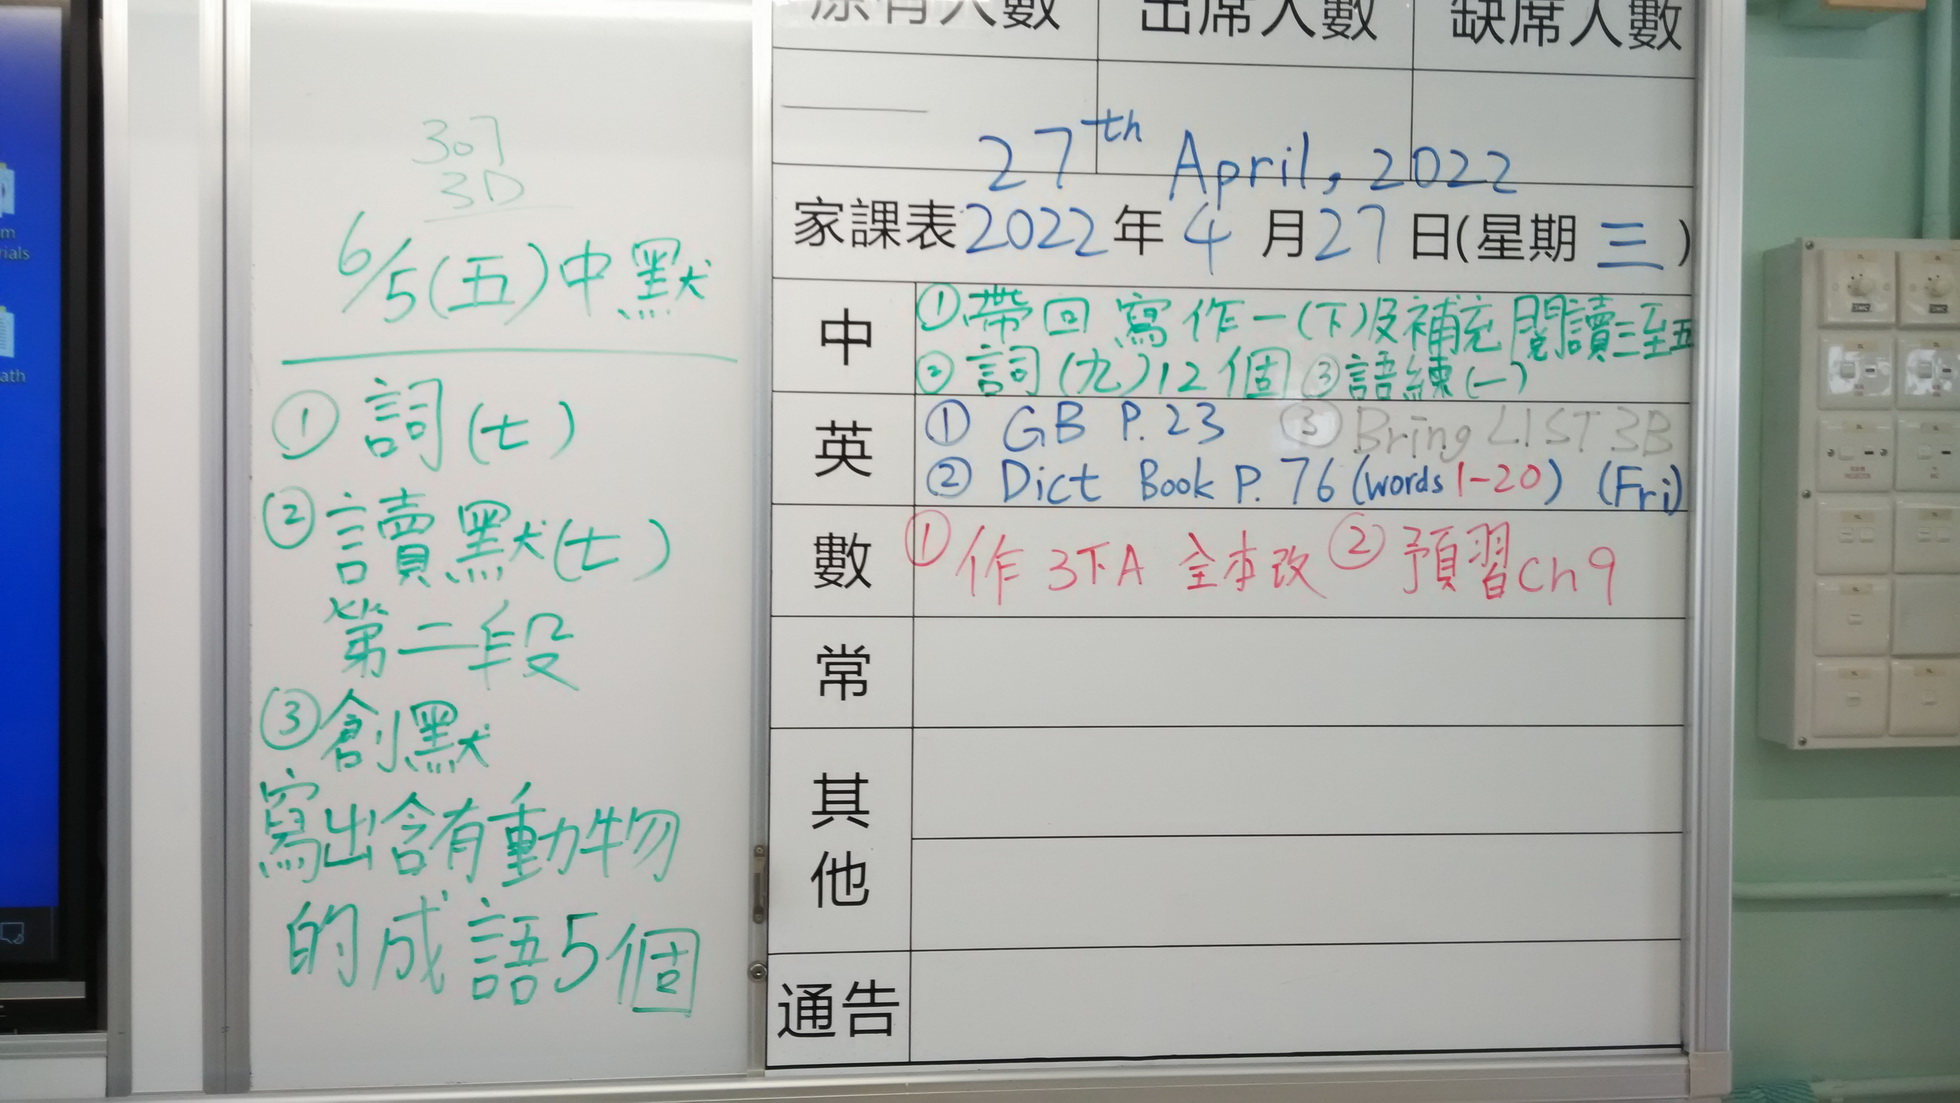 307
3D
6/5(五)中默
① 詞(七)
② 讀默(七)
第二段
③創默
寫出含有動物
的成語5個
原有人數 出席人數 缺席人數
27th April, 2022
家課表2022年4月27日(星期三)
中 ①帶回寫作一(下)及補充閱讀三至五
②詞(九)12個 ③語練(一)
英 ① GB P.23 ③ Bring LIST 3B
② Dict Book P. 76 (words 1-20) (Fri)
數 ①作3下A 全本改 ②預習ch 9
常
其他
通告